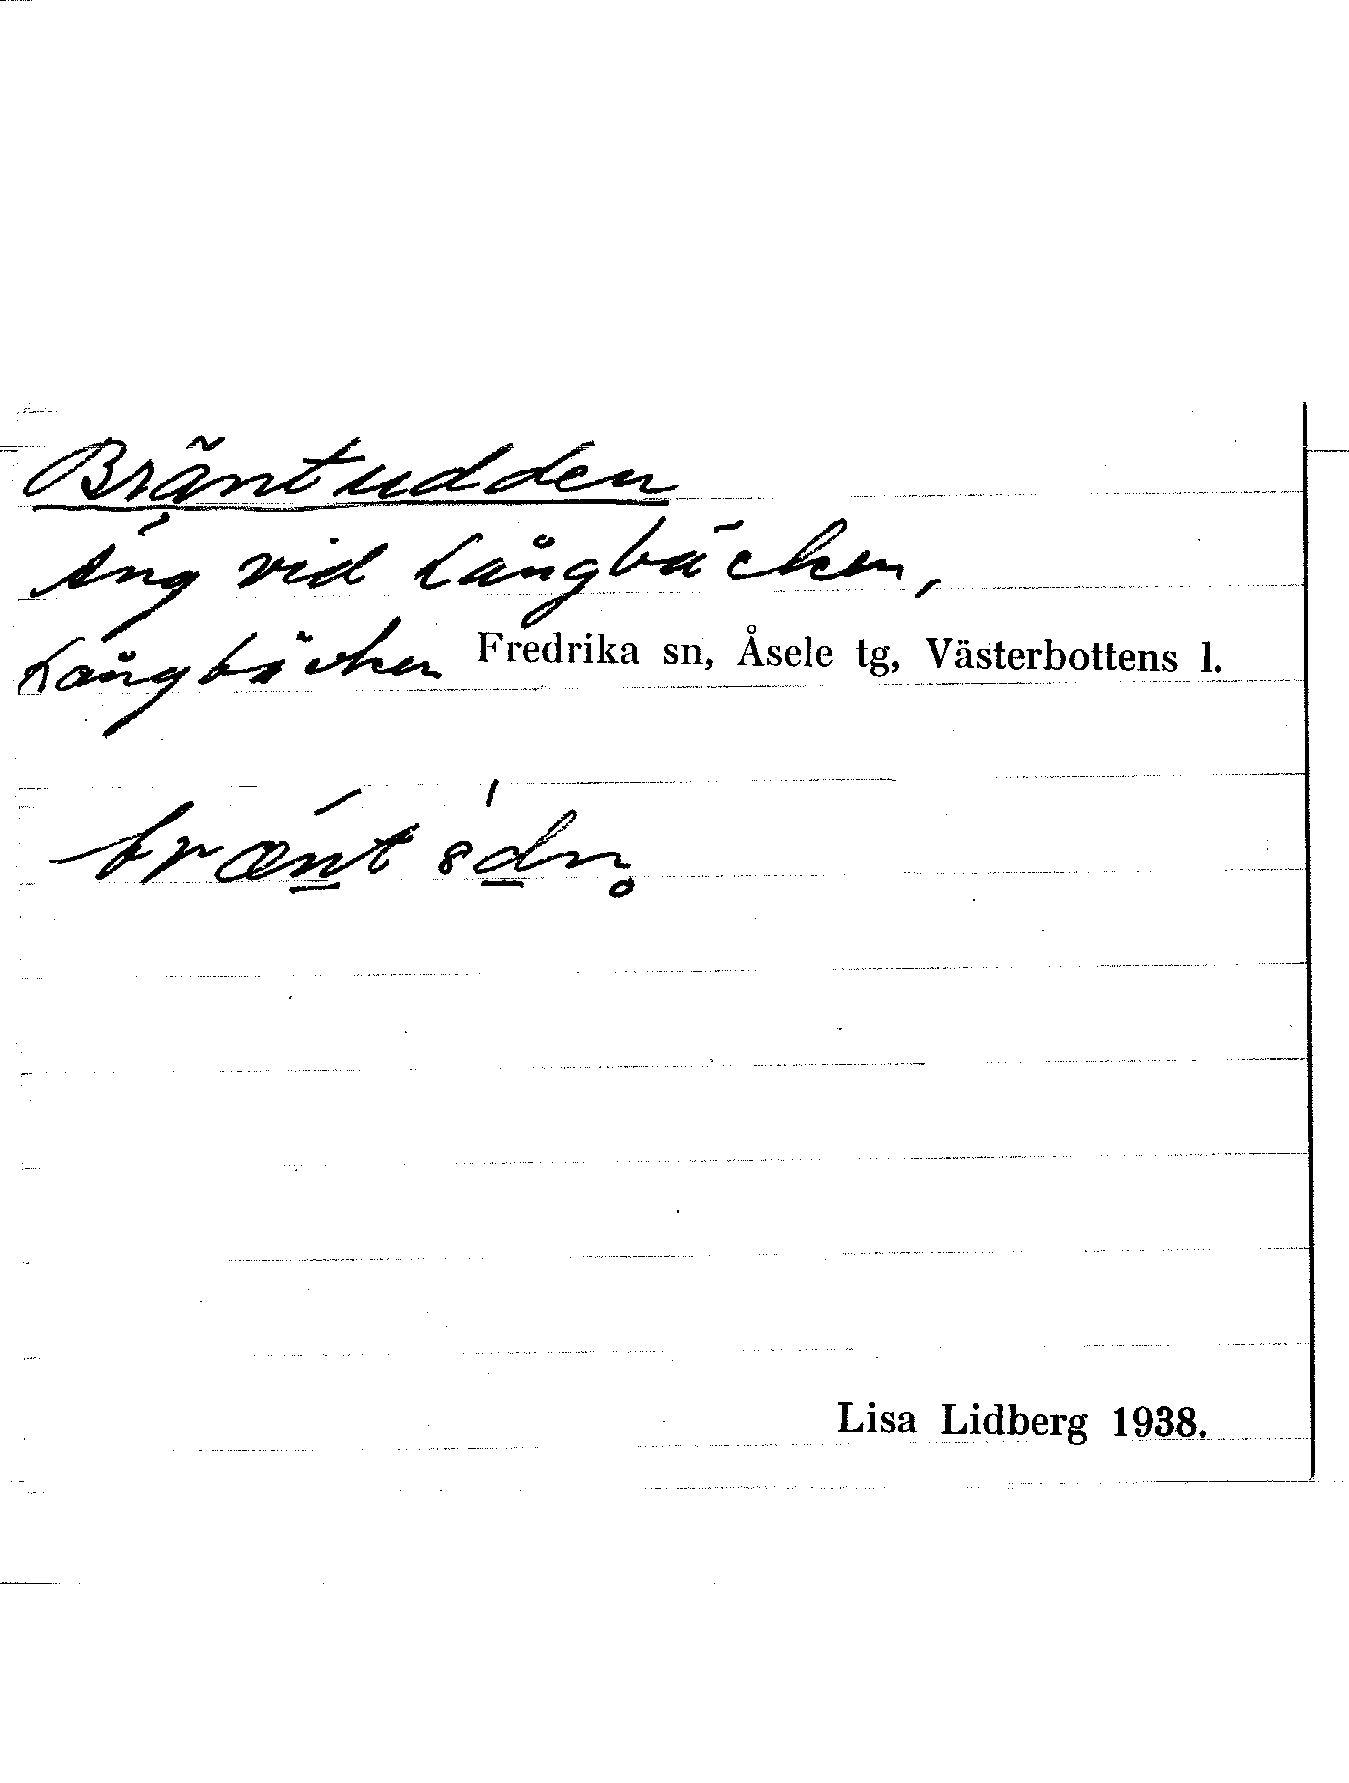 Bräntudden
Äng vid Långbäcken,
Långbäcken Fredrika sn, Åsele tg, Västerbottens l.
bræ̀n̲t 8́d̲n̥
Lisa Lidberg 1938.